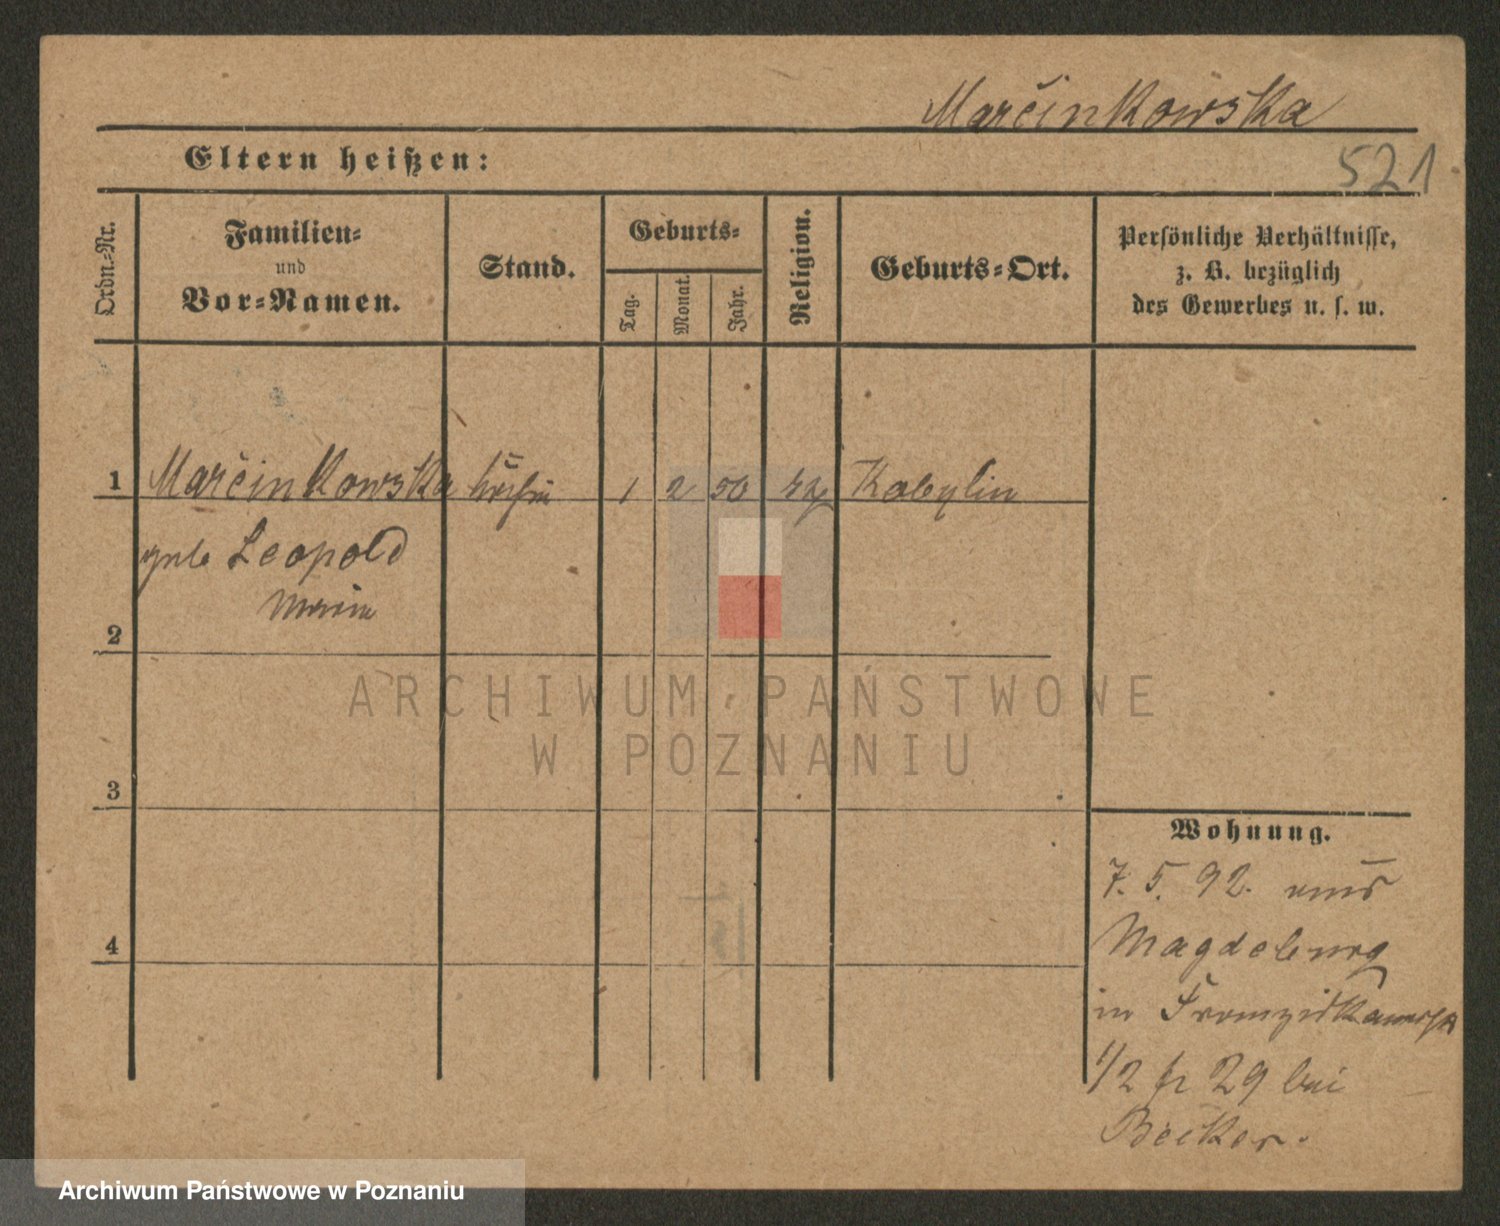 Marcinkowska
Eltern heißen:
521
Ordn.-Nr.
Familien-
und
Vor-Namen.
Stand.
Geburts-
Tag.
Monat.
Jahr.
Religion.
Geburts-Ort.
Persönliche Verhältnisse,
z. B. bezüglich
des Gewerbes u. s. w.
1 Marcinkowska 1 2 50 Kobylin
geb Leopold
Maria
2
ARCHIWUM PAŃSTWOWE
W POZNANIU
3
4
Wohnung.
7. 5. 92.
Magdeburg
in
1/2 29 bei
Becker.
Archiwum Państwowe w Poznaniu